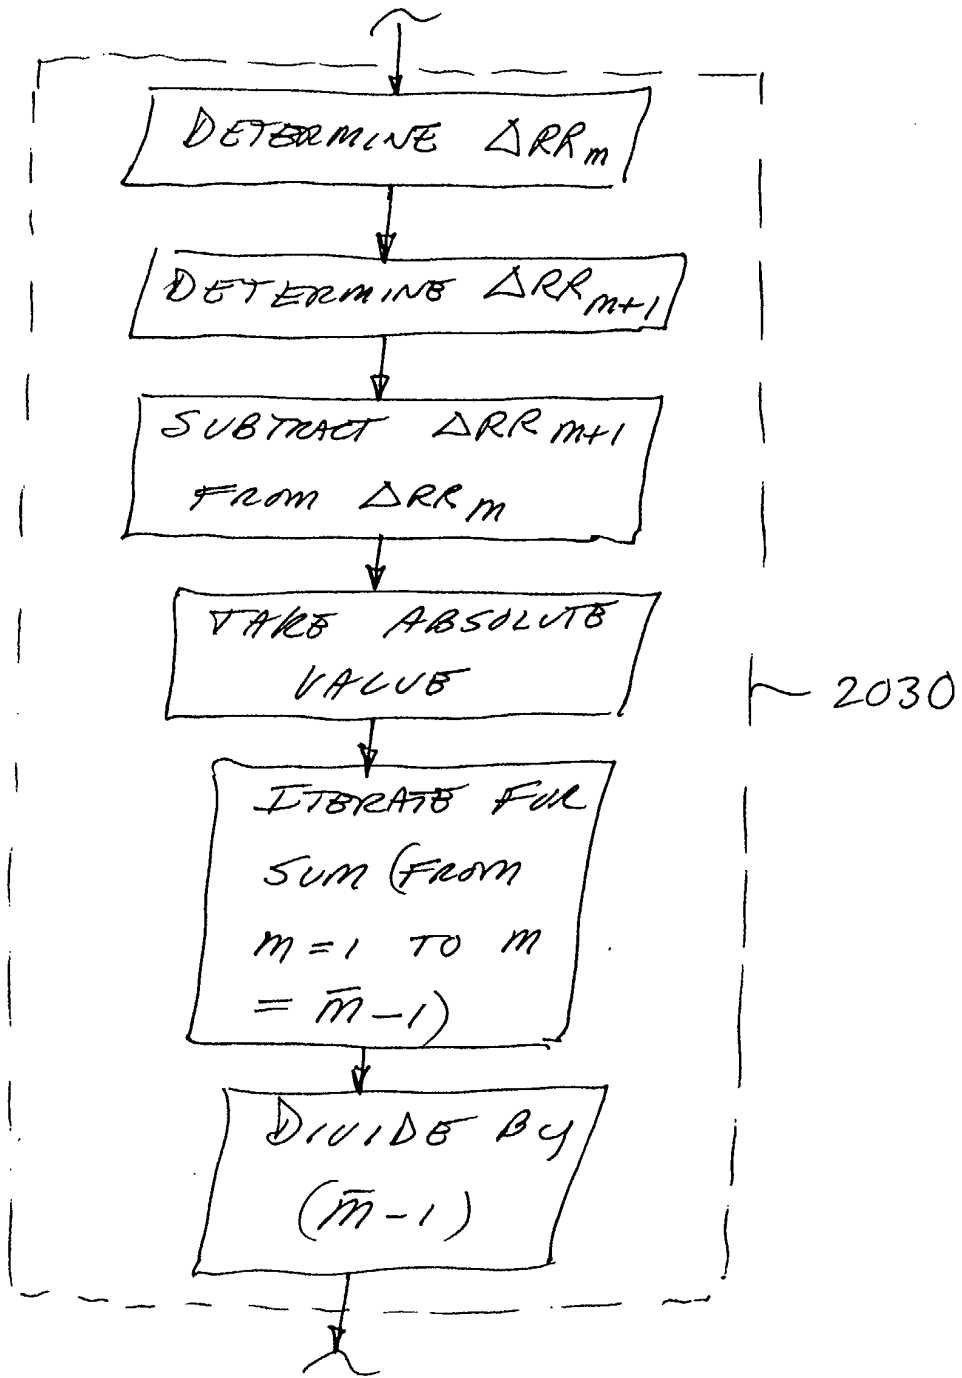 DETERMINE ΔRRₘ
DETERMINE ΔRRₘ₊₁
SUBTRACT ΔRRₘ₊₁
FROM ΔRRₘ
TAKE ABSOLUTE
VALUE
2030
ITERATE FOR
SUM (FROM
m = 1 TO m
= m̅ - 1)
DIVIDE BY
(m̅ - 1)